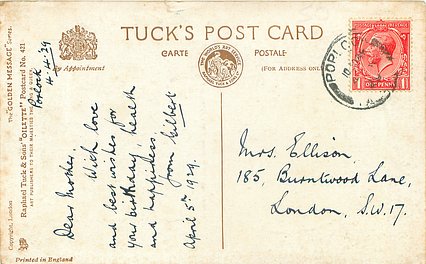 TUCK'S POST CARD
CARTE POSTALE
By Appointment
(FOR ADDRESS ONLY)
THE WORLD'S ART SERVICE
The "GOLDEN MESSAGE" Series.
Raphael Tuck & Sons' "OILETTE" Postcard No. 421
ART PUBLISHERS TO THEIR MAJESTIES THE KING & QUEEN.
Copyright. London
Printed in England
Porlock
4.4.29
Dear Mother,
With love
and best wishes for
your birthday, health
and happiness,
from Gilbert
April 5th 1929.
PORLOCK
1 ONE PENNY 1
Mrs. Ellison,
185, Burntwood Lane,
London, S.W.17.